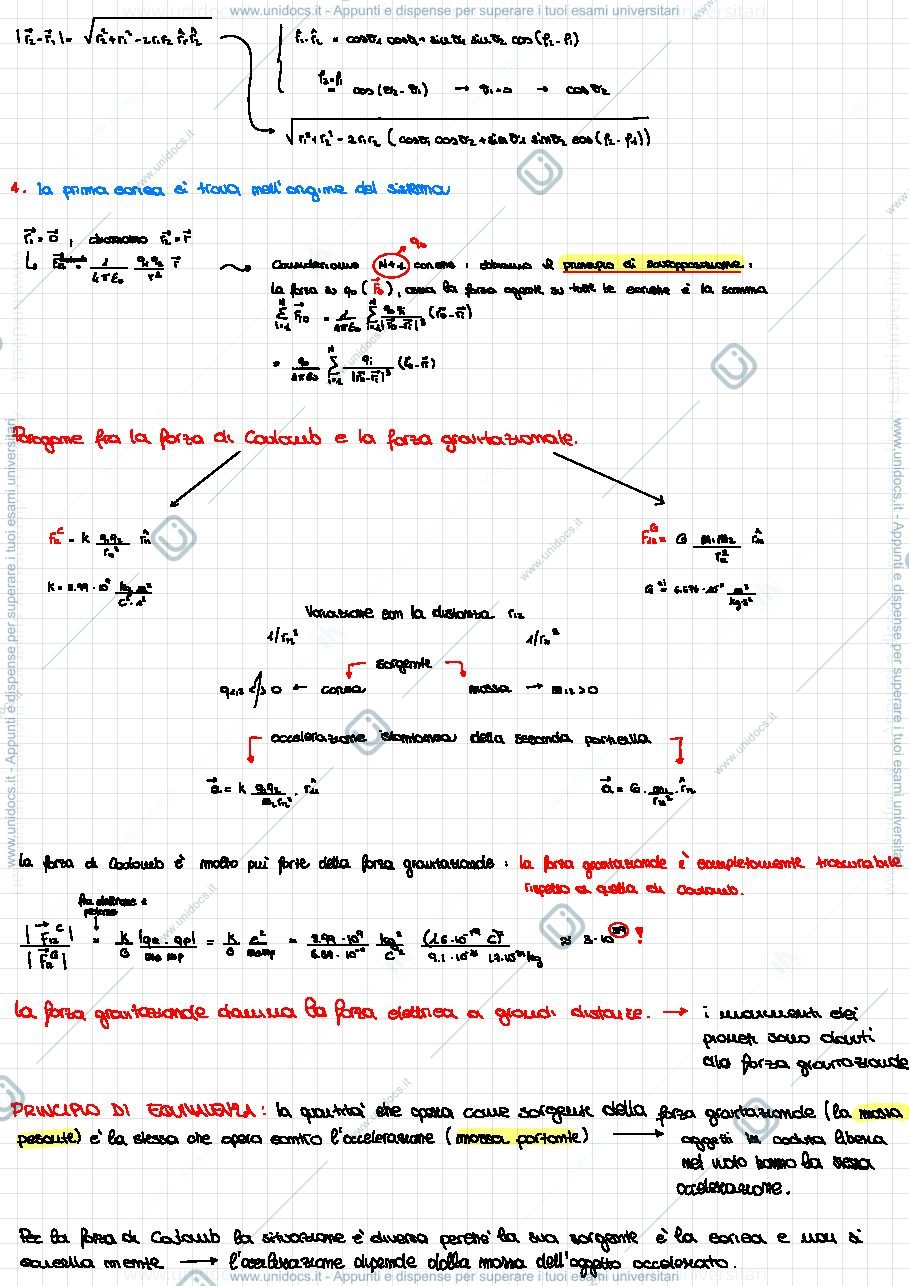 www.unidocs.it - Appunti e dispense per superare i tuoi esami universitari
|r⃗2-r⃗1| = √(r2²+r1²-2r1r2 r̂1·r̂2)
r̂1·r̂2 = cosθ1 cosθ2 + sinθ1 sinθ2 cos(φ2-φ1)
φ2=φ1
= cos(θ2-θ1) → θ1=0 → cosθ2
√(r1²+r2²-2r1r2 (cosθ1 cosθ2 + sinθ1 sinθ2 cos(φ2-φ1)))
4. la prima carica si trova nell'origine del sistema
r⃗1=0⃗, chiamiamo r⃗2=r⃗
1/4πε0 q1q2/r² r⃗
q0
Consideriamo N+1 cariche: abbiamo il principio di sovrapposizione:
la forza su q0 (F⃗0), ossia la forza agente su tutte le cariche è la somma
Σ i=1 N F⃗i0 = 1/4πε0 Σ i=1 N q0qi/|r⃗0-r⃗i|³ (r⃗0-r⃗i)
= q0/4πε0 Σ i=1 N qi/|r⃗0-r⃗i|³ (r⃗0-r⃗i)
Paragone fra la forza di Coulomb e la forza gravitazionale.
F⃗12^C = k q1q2/r12² r̂12
F⃗12^G = G m1m2/r12² r̂12
k = 8.99·10⁹ kg m³/C²·s²
G = 6.674·10 m³/kg s²
Variazione con la distanza r12
1/r12² 1/r12²
sorgente
q1,2 </> 0 ← carica massa → m1,2>0
accelerazione istantanea della seconda particella
a⃗ = k q1q2/m2r12² · r̂12
a⃗ = G · m1/r12² · r̂12
la forza di Coulomb è molto più forte della forza gravitazionale: la forza gravitazionale è completamente trascurabile
rispetto a quella di Coulomb.
fra elettrone e
protone
|F⃗12^C|/|F⃗12^G| = k/G |qe·qp|/me mp = k/G e²/me mp = 8.99·10⁹ kg²/C² (1.6·10⁻¹⁹ C)²/9.1·10⁻³¹ kg ≈ 2·10³⁹ !
la forza gravitazionale domina la forza elettrica a grandi distanze. → i movimenti dei
pianeti sono dovuti
alla forza gravitazionale
PRINCIPIO DI EQUIVALENZA: la quantità che opera come sorgente della forza gravitazionale (la massa
pesante) è la stessa che opera contro l'accelerazione (massa portante) → oggetti in caduta libera
nel vuoto hanno la stessa
accelerazione.
Per la forza di Coulomb la situazione è diversa perché la sua sorgente è la carica e non si
cancella niente → l'accelerazione dipende dalla massa dell'oggetto accelerato.
www.unidocs.it - Appunti e dispense per superare i tuoi esami universitari